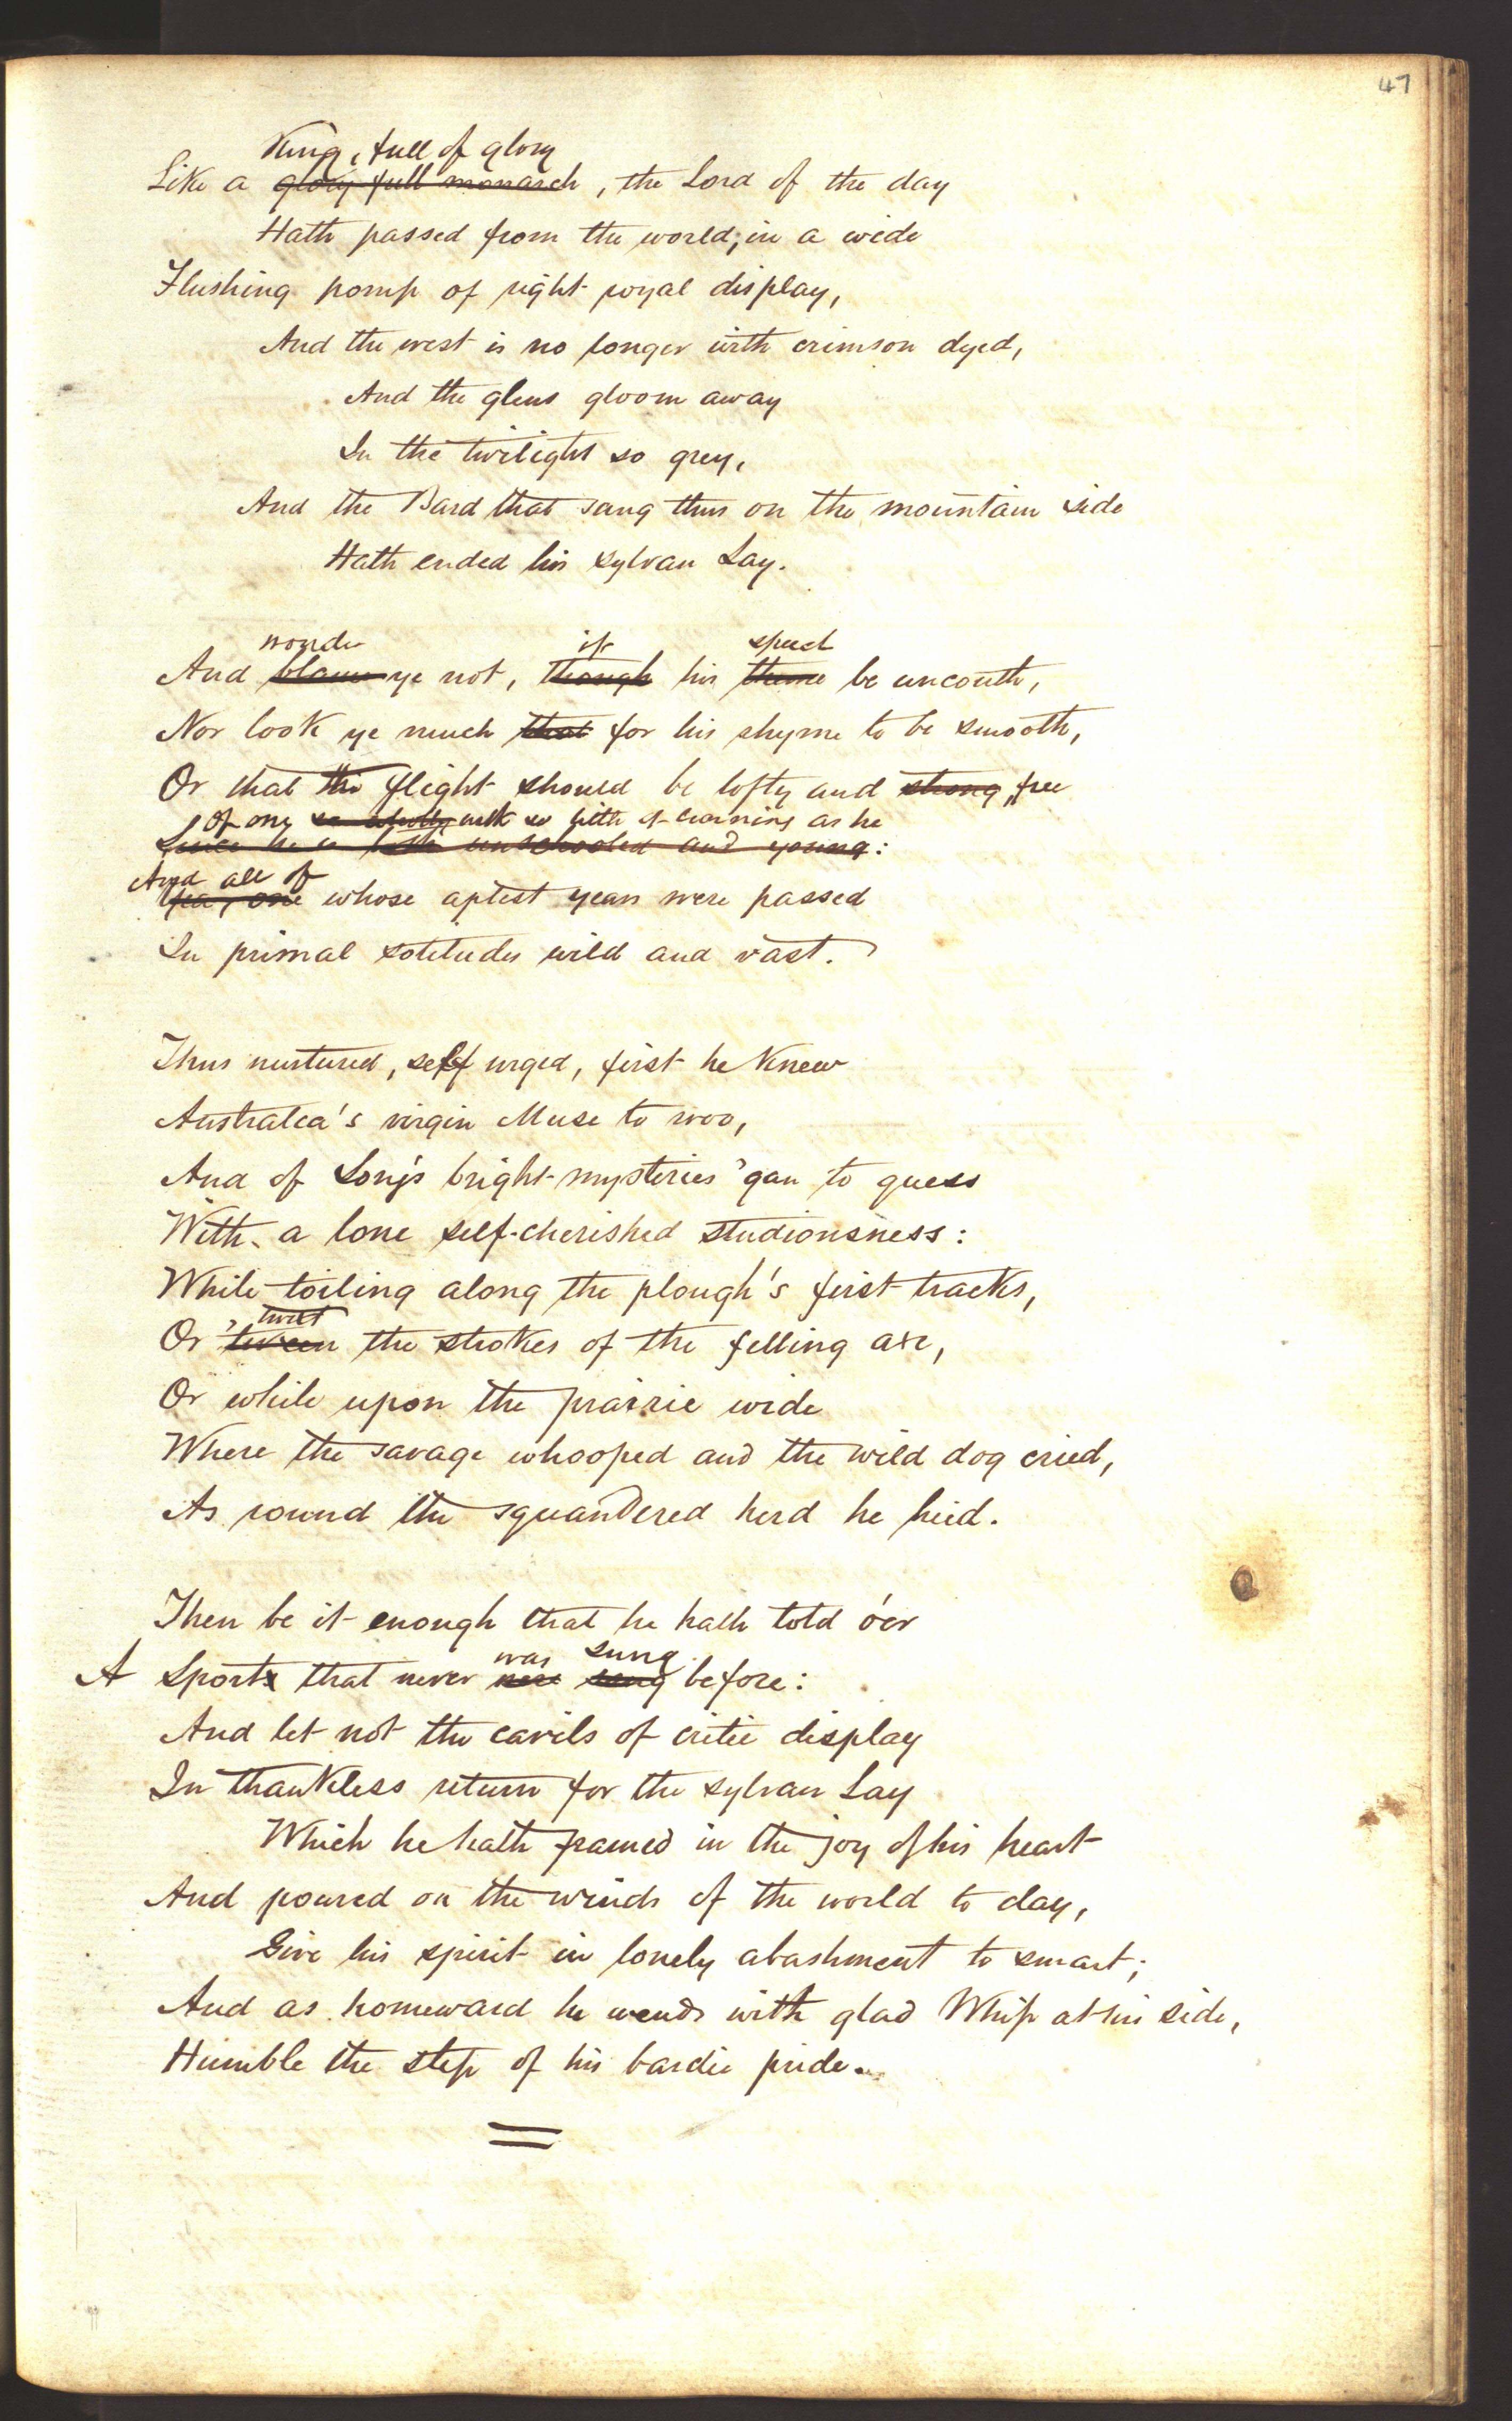 47
King, full of glory
Like a glory full monarch, the Lord of the day
Hath passed from the world, in a wide
Flushing pomp of right royal display,
And the west is no longer with crimson dyed,
And the glens gloom away
In the twilight so grey,
And the Bard that sang thus on the mountain side
Hath ended his sylvan Lay.
wonder if speech
And blame ye not, though his theme be uncouth,
Nor look ye much that for his rhyme to be smooth,
Or that the flight should be lofty and strong, free
Of one so with so little of learning as he
Since he is both unschooled and young:
And all of
Yea, one whose aptest years were passed
In primal solitudes wild and vast.
Thus nurtured, self urged, first he knew
Australia's virgin Muse to woo,
And of Song's bright mysteries 'gan to guess
With a lone self-cherished studiousness:
While toiling along the plough's first tracks,
'twixt
Or tween the strokes of the felling axe,
Or while upon the prairie wide
Where the savage whooped and the wild dog cried,
As round the squandered herd he hied.
Then be it enough that he hath told o'er
was sung
A Sports that never were sung before:
And let not the cavils of critic display
In thankless return for the sylvan Lay
Which he hath framed in the joy of his heart
And poured on the winds of the world to day,
Give his spirit in lonely abashment to smart;
And as homeward he wends with glad Whip at his side,
Humble the step of his bardic pride.